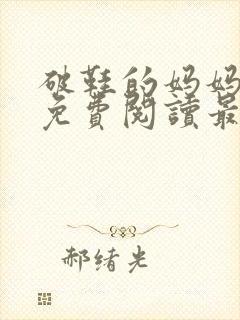 破鞋的妈妈
免費閱讀最
郝緒光